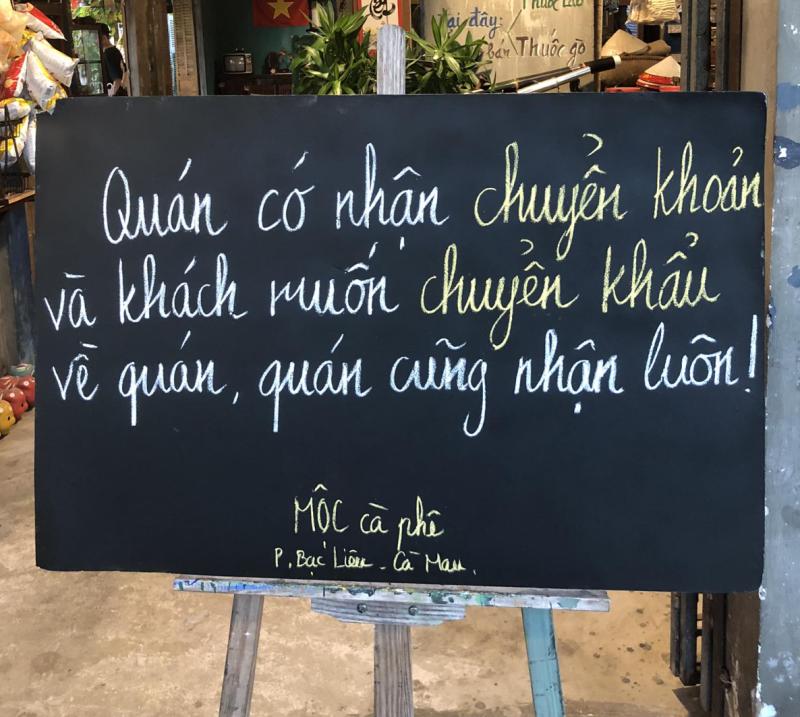 Thuốc Lào
ại đây:
bán Thuốc gò
Quán có nhận chuyển khoản
và khách muốn chuyển khẩu
về quán, quán cũng nhận luôn!
MỘC cà phê
P. Bạc Liêu - Cà Mau.